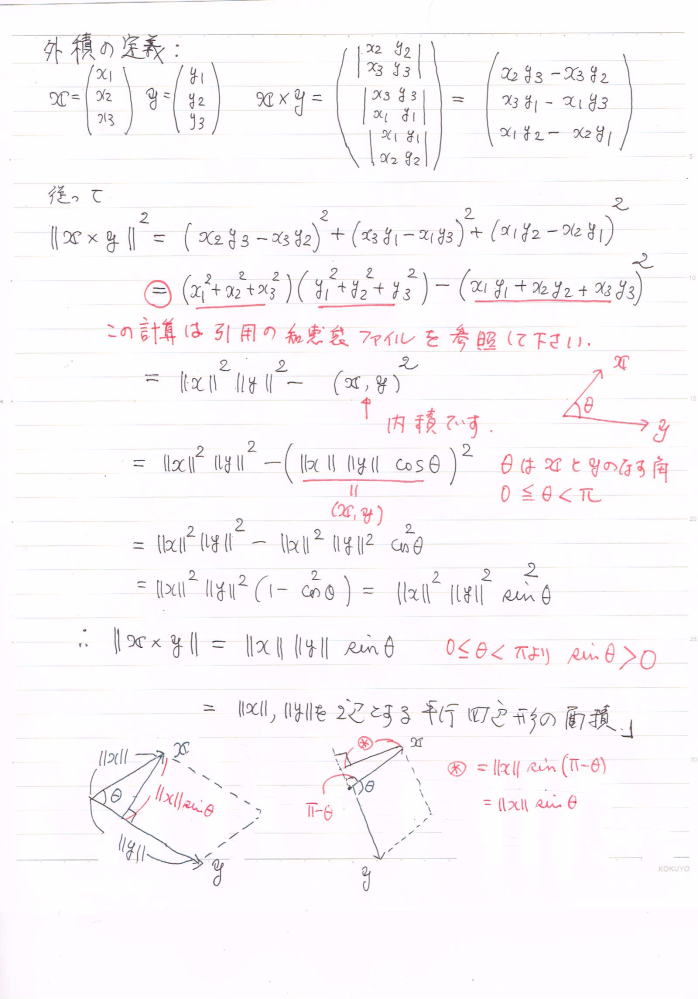 外積の定義:
x = (x1 x2 x3) y = (y1 y2 y3) x × y = (|x2 y2 x3 y3| |x3 y3 x1 y1| |x1 y1 x2 y2|) = (x2y3 − x3y2 x3y1 − x1y3 x1y2 − x2y1)
従って
‖x × y‖² = (x2y3 − x3y2)² + (x3y1 − x1y3)² + (x1y2 − x2y1)²
= (x1² + x2² + x3²)(y1² + y2² + y3²) − (x1y1 + x2y2 + x3y3)²
この計算は引用の知恵袋ファイルを参照して下さい.
= ‖x‖² ‖y‖² − (x, y)²
↑
内積です.
x
θ
y
= ‖x‖² ‖y‖² − (‖x‖ ‖y‖ cosθ)²
=
(x, y)
θはxとyのなす角
0 ≦ θ < π
= ‖x‖² ‖y‖² − ‖x‖² ‖y‖² cos²θ
= ‖x‖² ‖y‖² (1 − cos²θ) = ‖x‖² ‖y‖² sin²θ
∴ ‖x × y‖ = ‖x‖ ‖y‖ sinθ 0 ≦ θ < πより sinθ > 0
= ‖x‖, ‖y‖を2辺とする平行四辺形の面積」
‖x‖ x
θ ‖x‖sinθ
‖y‖
y
⊛ x
θ
π−θ
y
⊛ = ‖x‖ sin(π−θ)
= ‖x‖ sinθ
KOKUYO